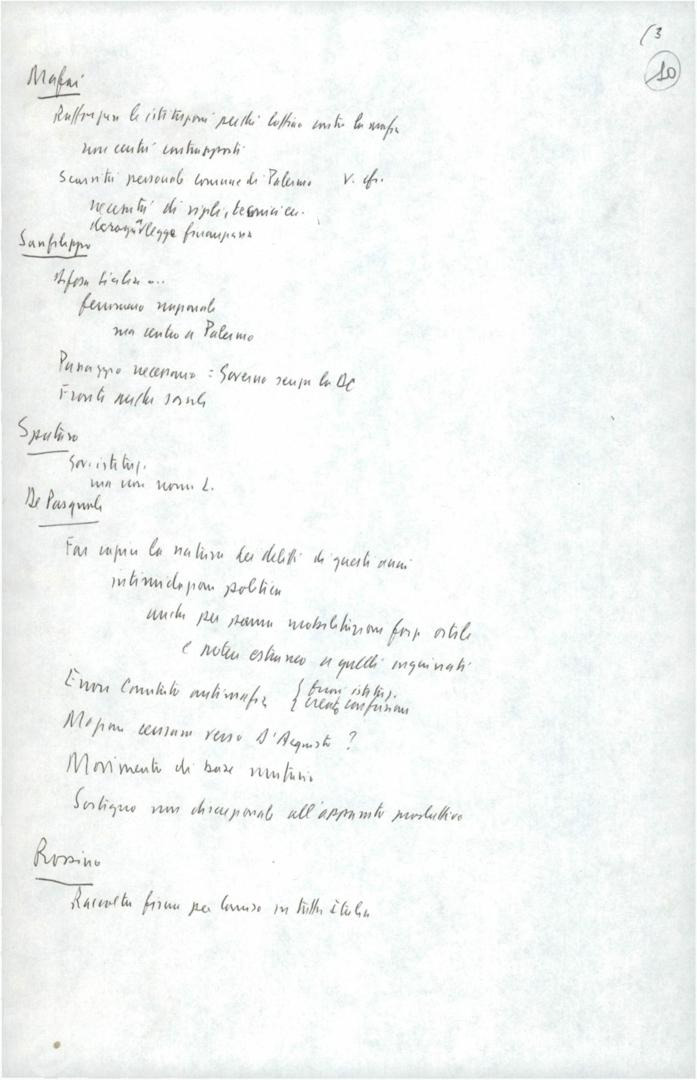 (3
10
Mafai
Rafforzare le istituzioni perché lottino contro la mafia
non centri contrapposti
Scarsità personale comune di Palermo V. cfr.
necessità di vigili, tecnici ecc.
deroga legge finanziaria
Sanfilippo
difesa Sicilia ...
fenomeno nazionale
ma centro a Palermo
Passaggio necessario = Governo senza la DC
Fronte anche sociale
Spataro
Gov. istituz.
ma non nomi L.
De Pasquale
Far capire la natura dei delitti di questi anni
intimidazione politica
anche per mobilitazione forze ostile
e estraneo a quelli inquinati
Errori Comitato antimafia { fuori istituz.
{ creato confusione
Mozione censura verso D'Acquisto ?
Movimento di base unitario
Sostegno non discrezionale all'apparato produttivo
Rossino
Raccolta firme per Comiso in tutta Italia